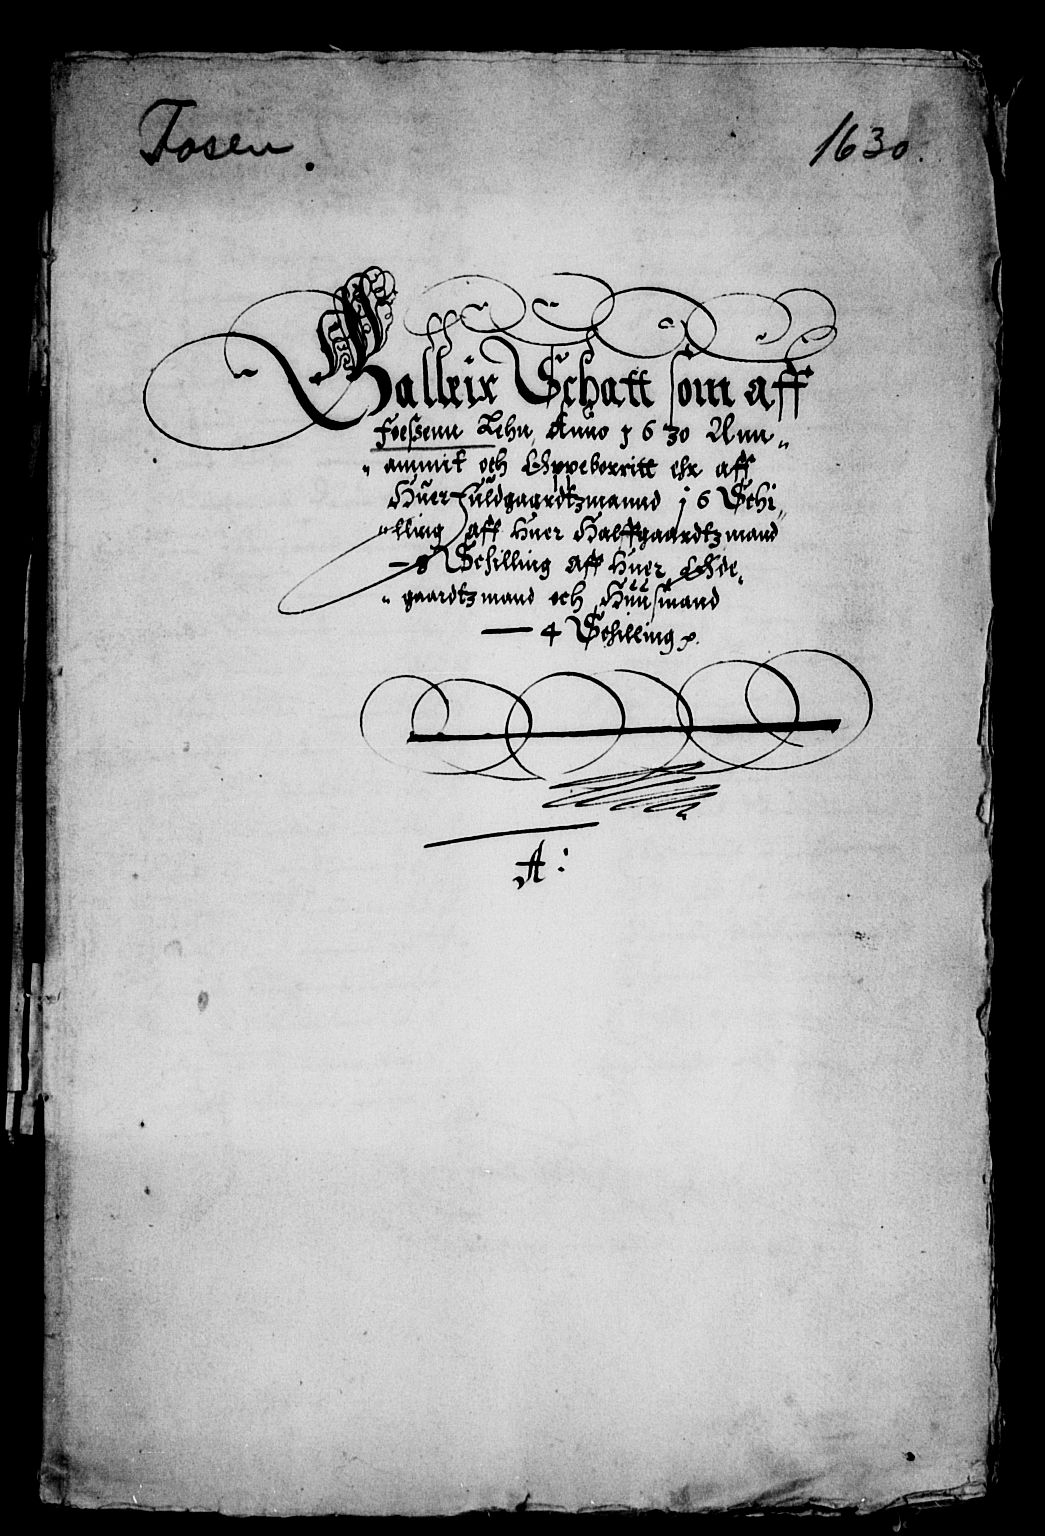 Fosen.
1630.
Galleie Schatt som aff
Foeßenn Lehn, Anno 1630 Ann„
„ ammit och Oppeborritt ehr aff
Huer fuldgaardtzmannd 16 Schi„
„lling aff huer Halffgaardtzmand
– 8 Schilling aff huer Øde„
„ gaardtzmand och Huusmand
— 4 Schilling
A: